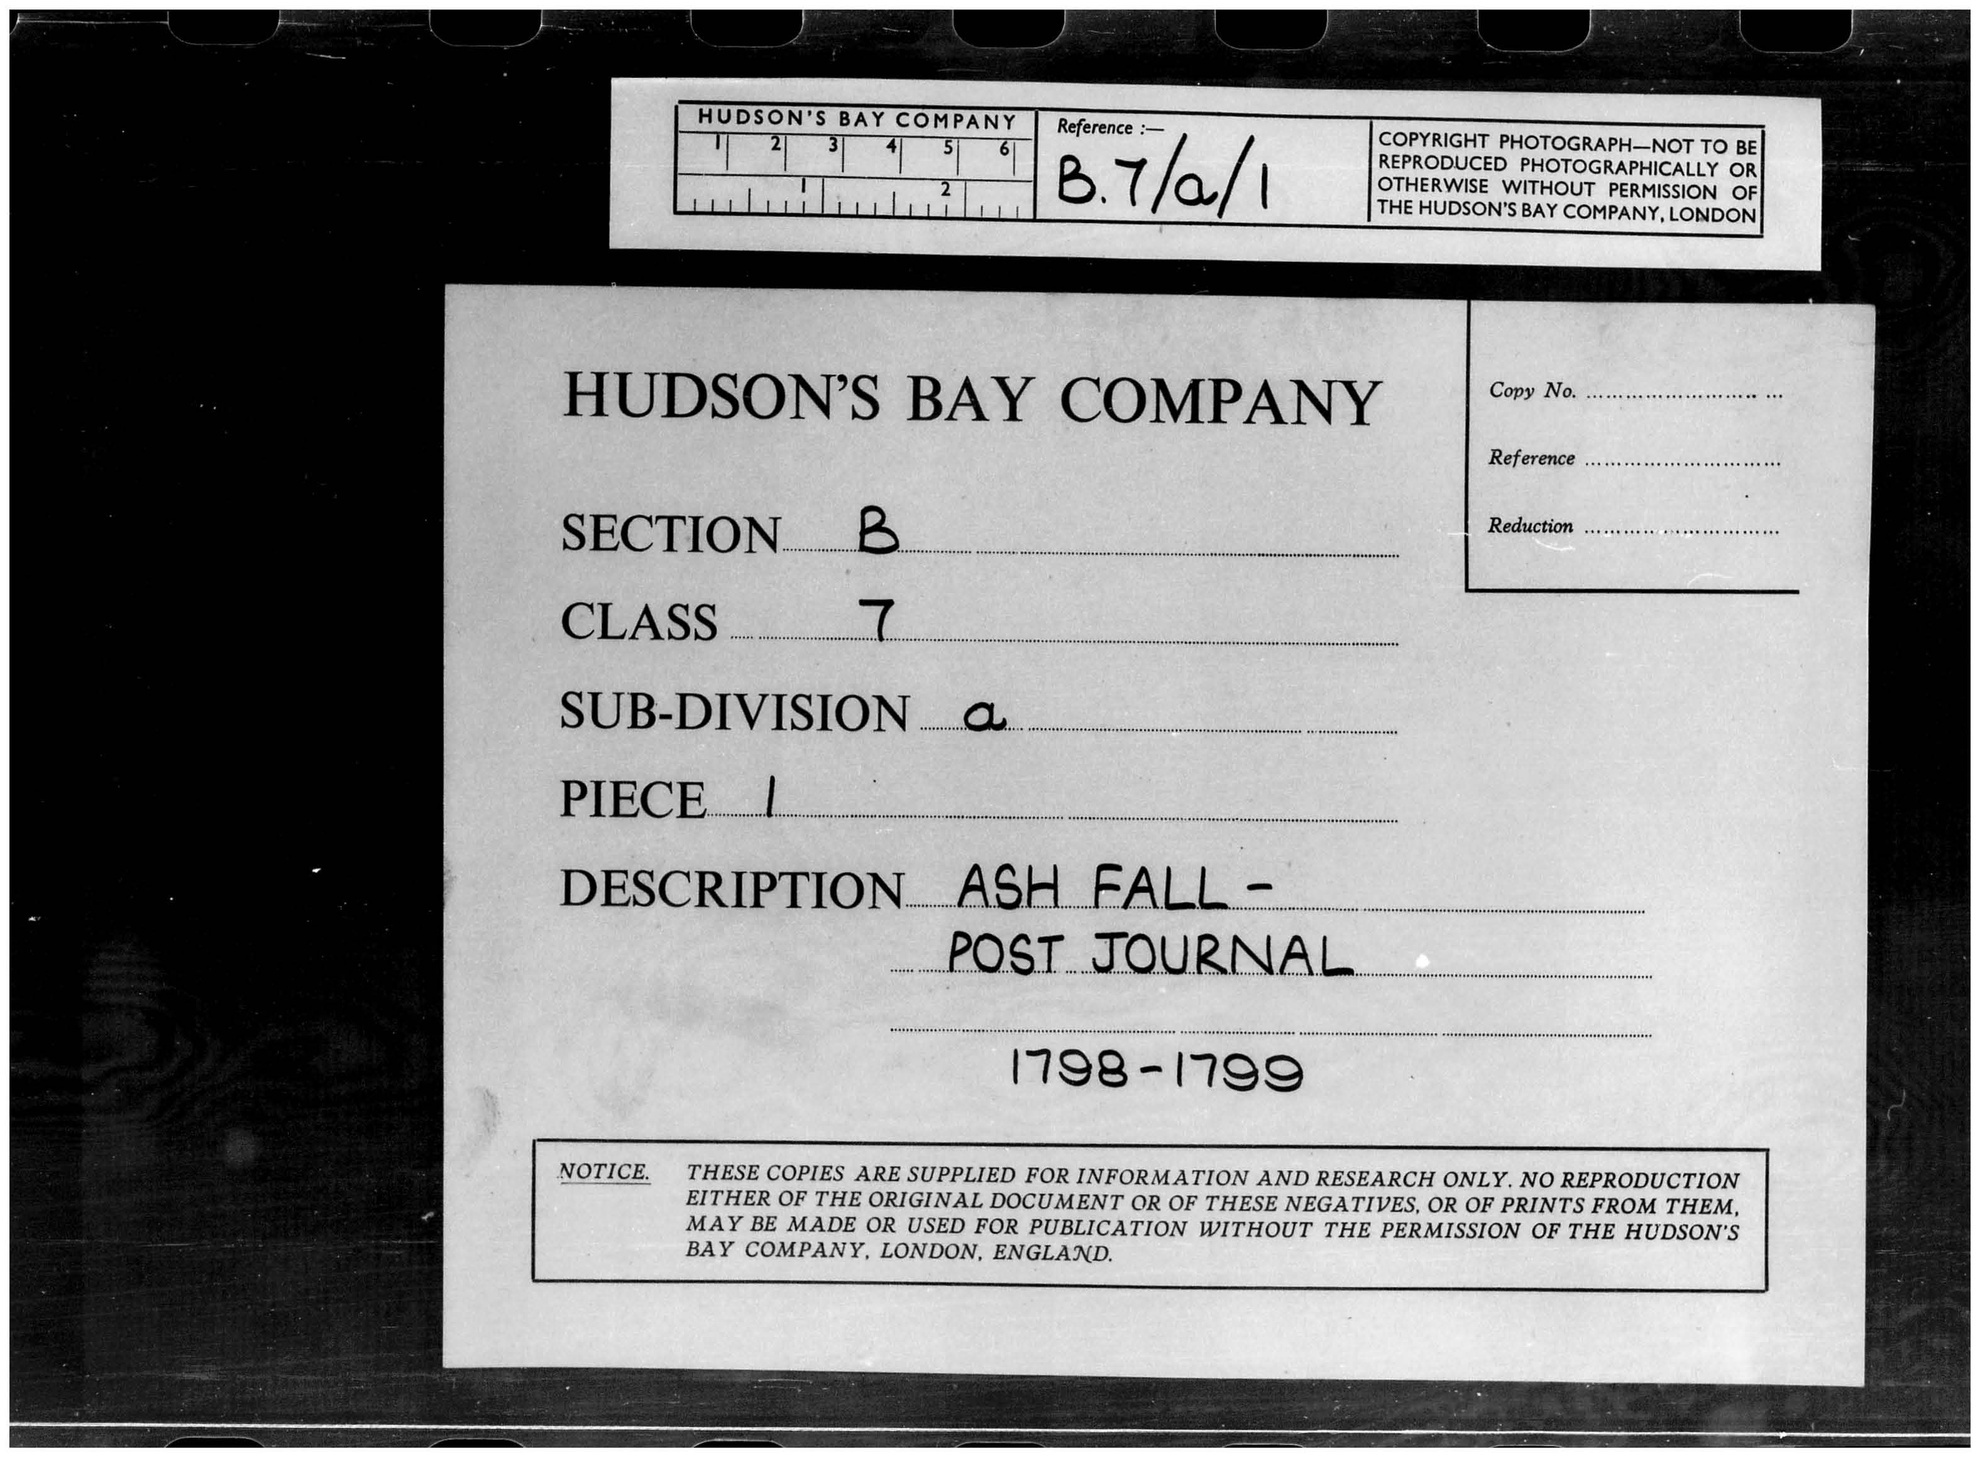 HUDSON'S BAY COMPANY
1 2 3 4 5 6
1 2
Reference :—
B.7/a/1
COPYRIGHT PHOTOGRAPH—NOT TO BE
REPRODUCED PHOTOGRAPHICALLY OR
OTHERWISE WITHOUT PERMISSION OF
THE HUDSON'S BAY COMPANY, LONDON
HUDSON'S BAY COMPANY
Copy No.
Reference
Reduction
SECTION B
CLASS 7
SUB-DIVISION a
PIECE 1
DESCRIPTION ASH FALL -
POST JOURNAL
1798-1799
NOTICE. THESE COPIES ARE SUPPLIED FOR INFORMATION AND RESEARCH ONLY. NO REPRODUCTION
EITHER OF THE ORIGINAL DOCUMENT OR OF THESE NEGATIVES, OR OF PRINTS FROM THEM,
MAY BE MADE OR USED FOR PUBLICATION WITHOUT THE PERMISSION OF THE HUDSON'S
BAY COMPANY, LONDON, ENGLAND.